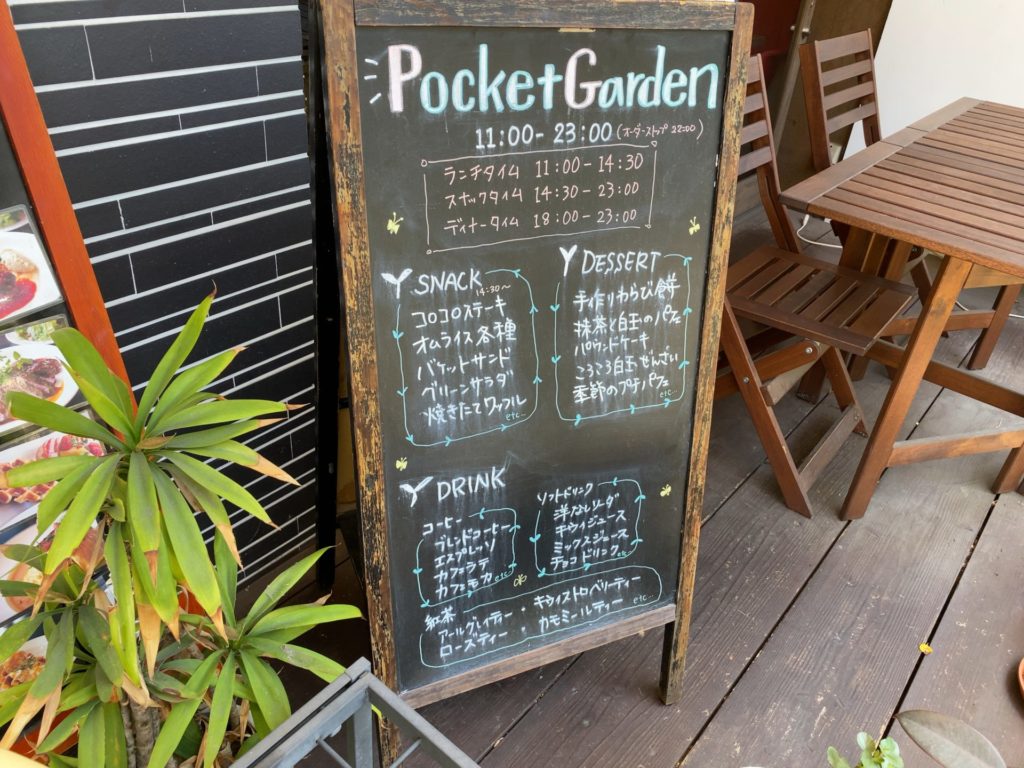 Pocket Garden
11:00 - 23:00 (オーダーストップ 22:00)
ランチタイム 11:00 - 14:30
スナックタイム 14:30 - 23:00
ディナータイム 18:00 - 23:00
SNACK
14:30〜
コロコロステーキ
オムライス各種
バケットサンド
グリーンサラダ
焼きたてワッフル
etc…
DESSERT
手作りわらび餅
抹茶と白玉のパフェ
パウンドケーキ
ころころ白玉ぜんざい
季節のプチパフェ
etc…
DRINK
コーヒー
ブレンドコーヒー
エスプレッソ
カフェラテ
カフェモカ
etc
ソフトドリンク
洋なしソーダ
キウイジュース
ミックスジュース
チョコドリンク
etc
紅茶
アールグレイティー ・ キウイストロベリーティー
ローズティー ・ カモミールティー
etc…